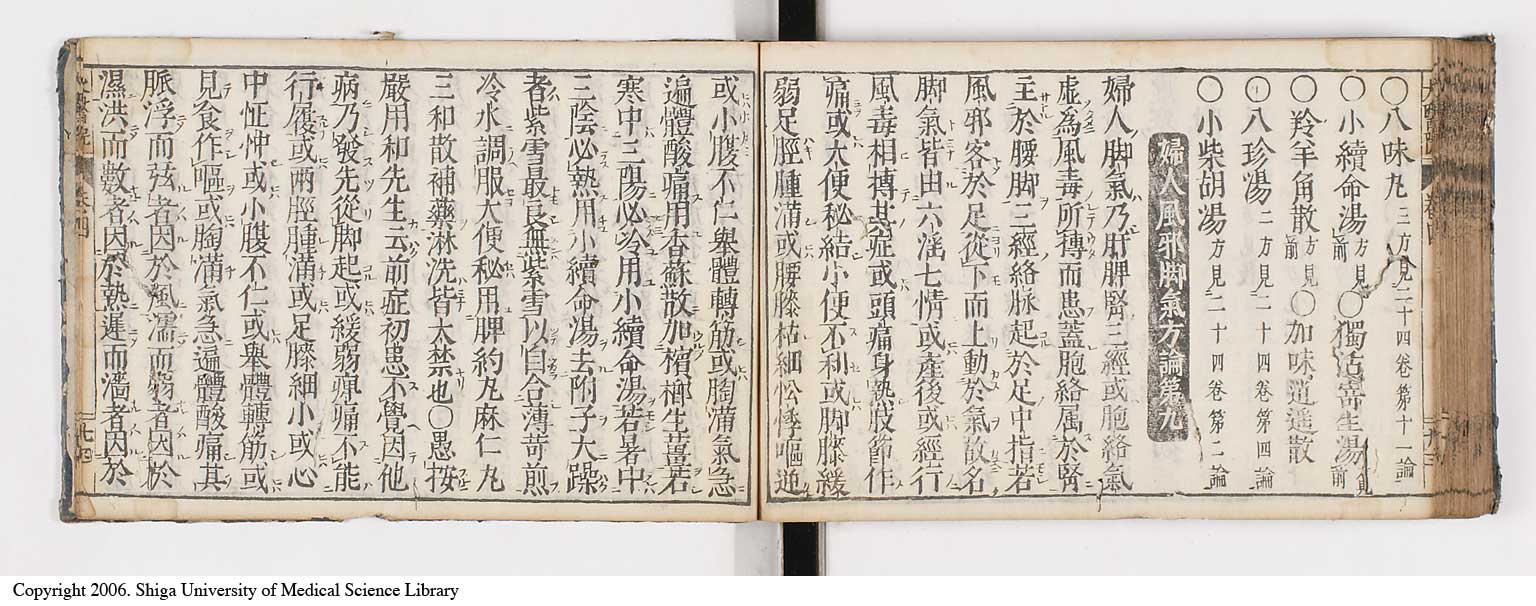 〇八味丸三方見二十四卷第十一論
〇小續命湯方見前〇獨活寄生湯見前
〇羚羊角散方見前〇加味逍遥散
〇八珍湯二方見二十四卷第四論
〇小柴胡湯方見二十四卷第二論
婦人風邪脚氣方論第九
婦人脚氣乃肝脾腎三經或胞絡氣
虛為風毒所搏而患蓋胞絡属於腎
主於腰脚三經絡脉起於足中指若
風邪客於足從下而上動於氣故名
脚氣皆由六淫七情或產後或經行
風毒相搏其症或頭痛身熱肢節作
痛或大便秘結小便不利或脚膝緩
弱足脛腫滿或腰膝枯細忪悸嘔逆
或小腹不仁舉體轉筋或胸滿氣急
遍體酸痛用香蘇散加檳榔生薑若
寒中三陽必冷用小續命湯若暑中
三陰必熱用小續命湯去附子大躁
者紫雪最良無紫雪以自合薄苛煎
冷水調服大便秘用脾約丸麻仁丸
三和散補藥淋洗皆太禁也〇愚按
嚴用和先生云前症初患不覺因他
病乃發先從脚起或緩弱痹痛不能
行履或兩脛腫滿或足膝細小或心
中怔忡或小腹不仁或舉體轉筋或
見食作嘔或胸滿氣急遍體酸痛其
脈浮而弦者因於風濡而弱者因於
濕洪而數者因於熱遲而濇者因於
卷廿四
七四
Copyright 2006. Shiga University of Medical Science Library